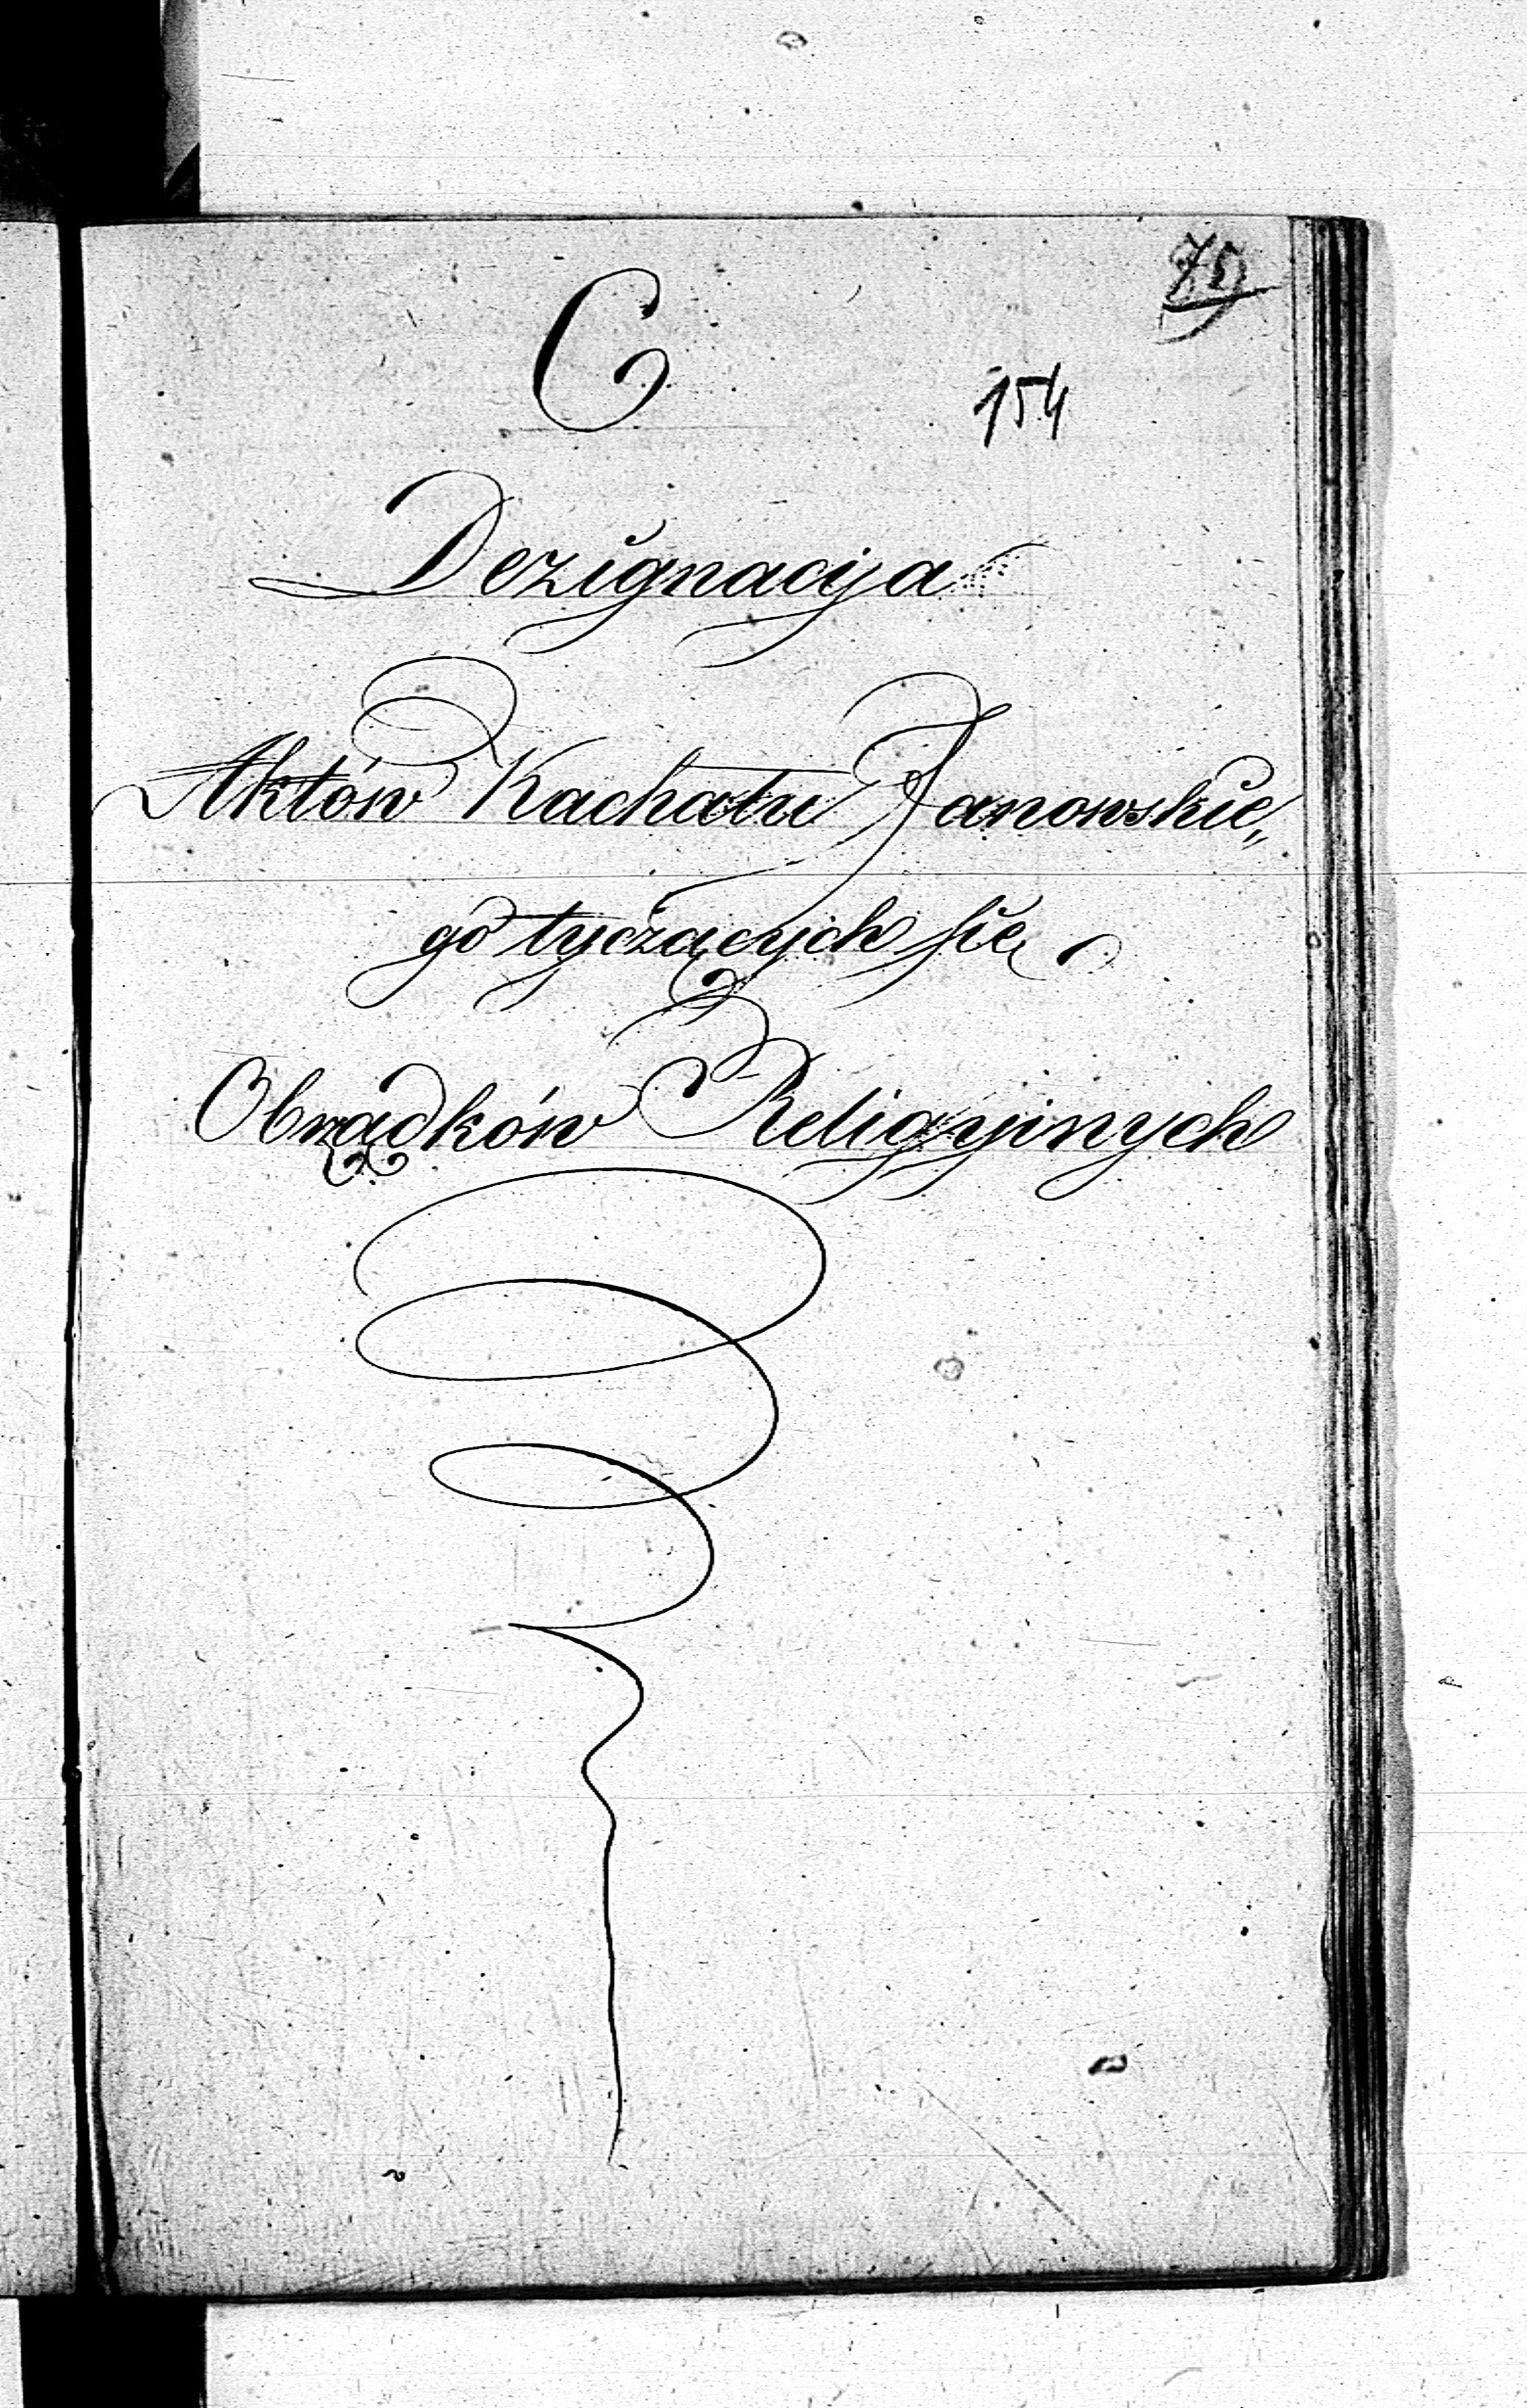 75
C
154
Dezignacija
Aktów Kachału Janowskie„
go tyczących się
Obrządków Religyinych